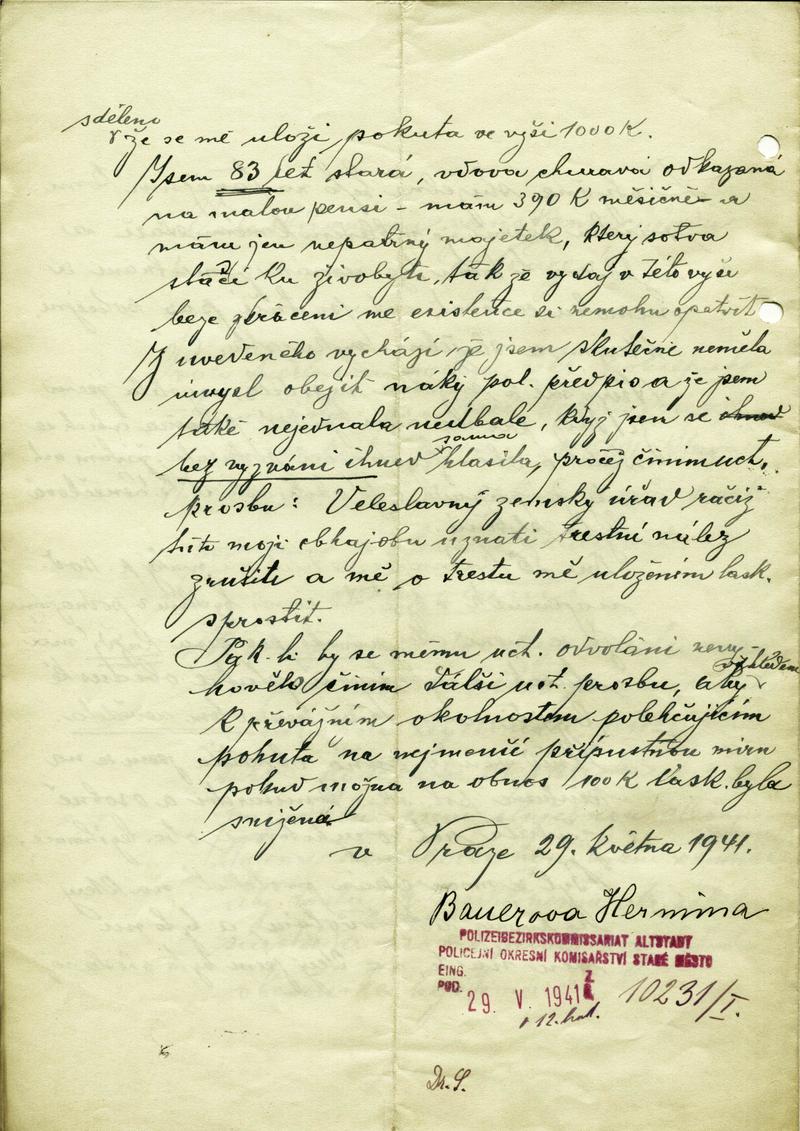 sděleno
že se mě uloží pokuta ve výši 1000 K.
Jsem 83 let stará, vdova churavá odkazaná
na malou pensi - mám 390 K měsíčně - a
mám jen nepatrný majetek, který sotva
stačí ku živobyti, tak že vydaj v této výši
beze zkráceni me existence si nemohu opatřit
Z uvedeného vychází že jsem skutečně neměla
úmysl obejít náký pol. předpis a že jsem
také nejednala nedbale, když jsem se ihned
bez vyzváni ihned sama hlasila, pročež činim uct.
prosbu: Veleslavný zemský úřad račiž
tuto moji obhajobu uznati trestní nález
zrušiti a mě o trestu mě uloženim lask.
sprostit.
Pak-li by se mému uct. odvoláni nevy-
hovělo činim další uct. prosbu, aby vzhledem
k převážním okolnostem polehčujícim
pokuta na nejmenší přípustnou miru
pokud možna na obnos 100 K lask. byla
snižena
v Praze 29. května 1941.
Bauerova Hermina
POLIZEIBEZIRKSKOMMISSARIAT ALTSTADT
POLICEJNÍ OKRESNÍ KOMISAŘSTVÍ STARÉ MĚSTO
EING.
POD. 29. V. 1941 10231/I.
12. hod.
Dr. S.